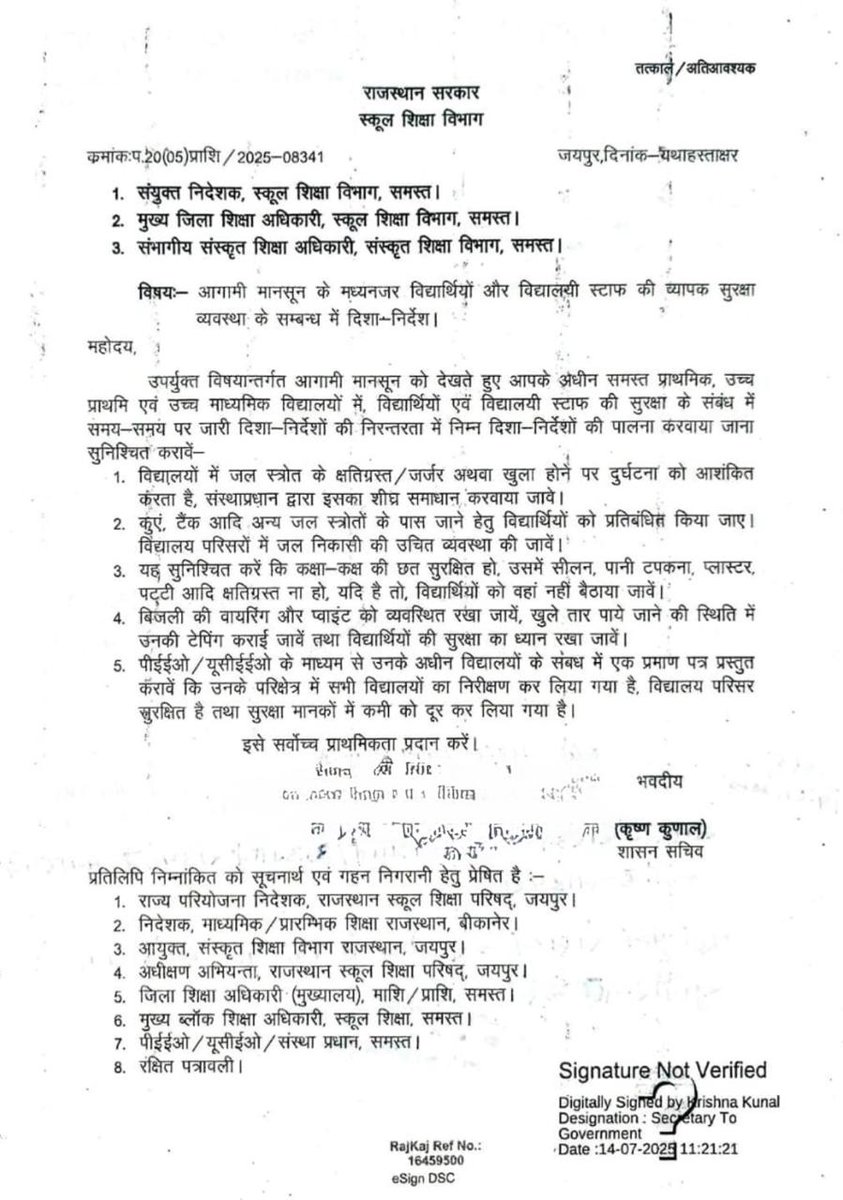 तत्काल/अतिआवश्यक
राजस्थान सरकार
स्कूल शिक्षा विभाग
क्रमांकःप.20(05)प्राशि/2025-08341 जयपुर,दिनांक–यथाहस्ताक्षर
1. संयुक्त निदेशक, स्कूल शिक्षा विभाग, समस्त।
2. मुख्य जिला शिक्षा अधिकारी, स्कूल शिक्षा विभाग, समस्त।
3. संभागीय संस्कृत शिक्षा अधिकारी, संस्कृत शिक्षा विभाग, समस्त।
विषयः– आगामी मानसून के मध्यनजर विद्यार्थियों और विद्यालयी स्टाफ की व्यापक सुरक्षा
व्यवस्था के सम्बन्ध में दिशा–निर्देश।
महोदय,
उपर्युक्त विषयान्तर्गत आगामी मानसून को देखते हुए आपके अधीन समस्त प्राथमिक, उच्च
प्राथमि एवं उच्च माध्यमिक विद्यालयों में, विद्यार्थियों एवं विद्यालयी स्टाफ की सुरक्षा के संबंध में
समय–समय पर जारी दिशा–निर्देशों की निरन्तरता में निम्न दिशा–निर्देशों की पालना करवाया जाना
सुनिश्चित करावें–
1. विद्यालयों में जल स्त्रोत के क्षतिग्रस्त/जर्जर अथवा खुला होने पर दुर्घटना को आशंकित
करता है, संस्थाप्रधान द्वारा इसका शीघ्र समाधान करवाया जावे।
2. कुंए, टैंक आदि अन्य जल स्त्रोतों के पास जाने हेतु विद्यार्थियों को प्रतिबंधित किया जाए।
विद्यालय परिसरों में जल निकासी की उचित व्यवस्था की जावें।
3. यह सुनिश्चित करें कि कक्षा–कक्ष की छत सुरक्षित हो, उसमें सीलन, पानी टपकना, प्लास्टर,
पट्टी आदि क्षतिग्रस्त ना हो, यदि है तो, विद्यार्थियों को वहां नहीं बैठाया जावें।
4. बिजली की वायरिंग और प्वाइंट को व्यवस्थित रखा जायें, खुले तार पाये जाने की स्थिति में
उनकी टेपिंग कराई जावें तथा विद्यार्थियों की सुरक्षा का ध्यान रखा जावें।
5. पीईईओ/यूसीईईओ के माध्यम से उनके अधीन विद्यालयों के संबध में एक प्रमाण पत्र प्रस्तुत
करावें कि उनके परिक्षेत्र में सभी विद्यालयों का निरीक्षण कर लिया गया है, विद्यालय परिसर
सुरक्षित है तथा सुरक्षा मानकों में कमी को दूर कर लिया गया है।
इसे सर्वोच्च प्राथमिकता प्रदान करें।
भवदीय
(कृष्ण कुणाल)
शासन सचिव
प्रतिलिपि निम्नांकित को सूचनार्थ एवं गहन निगरानी हेतु प्रेषित है :–
1. राज्य परियोजना निदेशक, राजस्थान स्कूल शिक्षा परिषद्, जयपुर।
2. निदेशक, माध्यमिक/प्रारम्भिक शिक्षा राजस्थान, बीकानेर।
3. आयुक्त, संस्कृत शिक्षा विभाग राजस्थान, जयपुर।
4. अधीक्षण अभियन्ता, राजस्थान स्कूल शिक्षा परिषद्, जयपुर।
5. जिला शिक्षा अधिकारी (मुख्यालय), माशि/प्राशि, समस्त।
6. मुख्य ब्लॉक शिक्षा अधिकारी, स्कूल शिक्षा, समस्त।
7. पीईईओ/यूसीईओ/संस्था प्रधान, समस्त।
8. रक्षित पत्रावली।
Signature Not Verified
Digitally Signed by Krishna Kunal
Designation : Secretary To
Government
Date :14-07-2025 11:21:21
RajKaj Ref No.:
16459500
eSign DSC